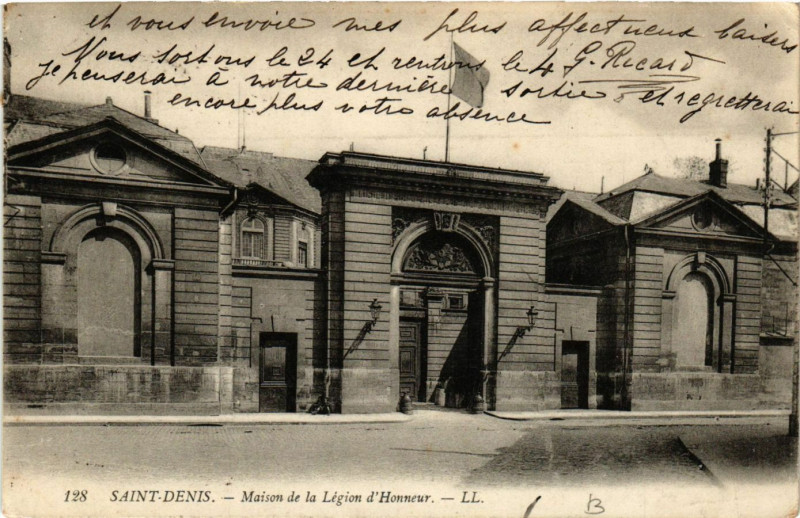 et vous envoie mes plus affectueux baisers
Nous sortons le 24 et rentrons le 4 G. Ricard
Je penserai à notre dernière sortie et regretterai
encore plus votre absence
128 SAINT-DENIS. — Maison de la Légion d'Honneur. — LL.
B